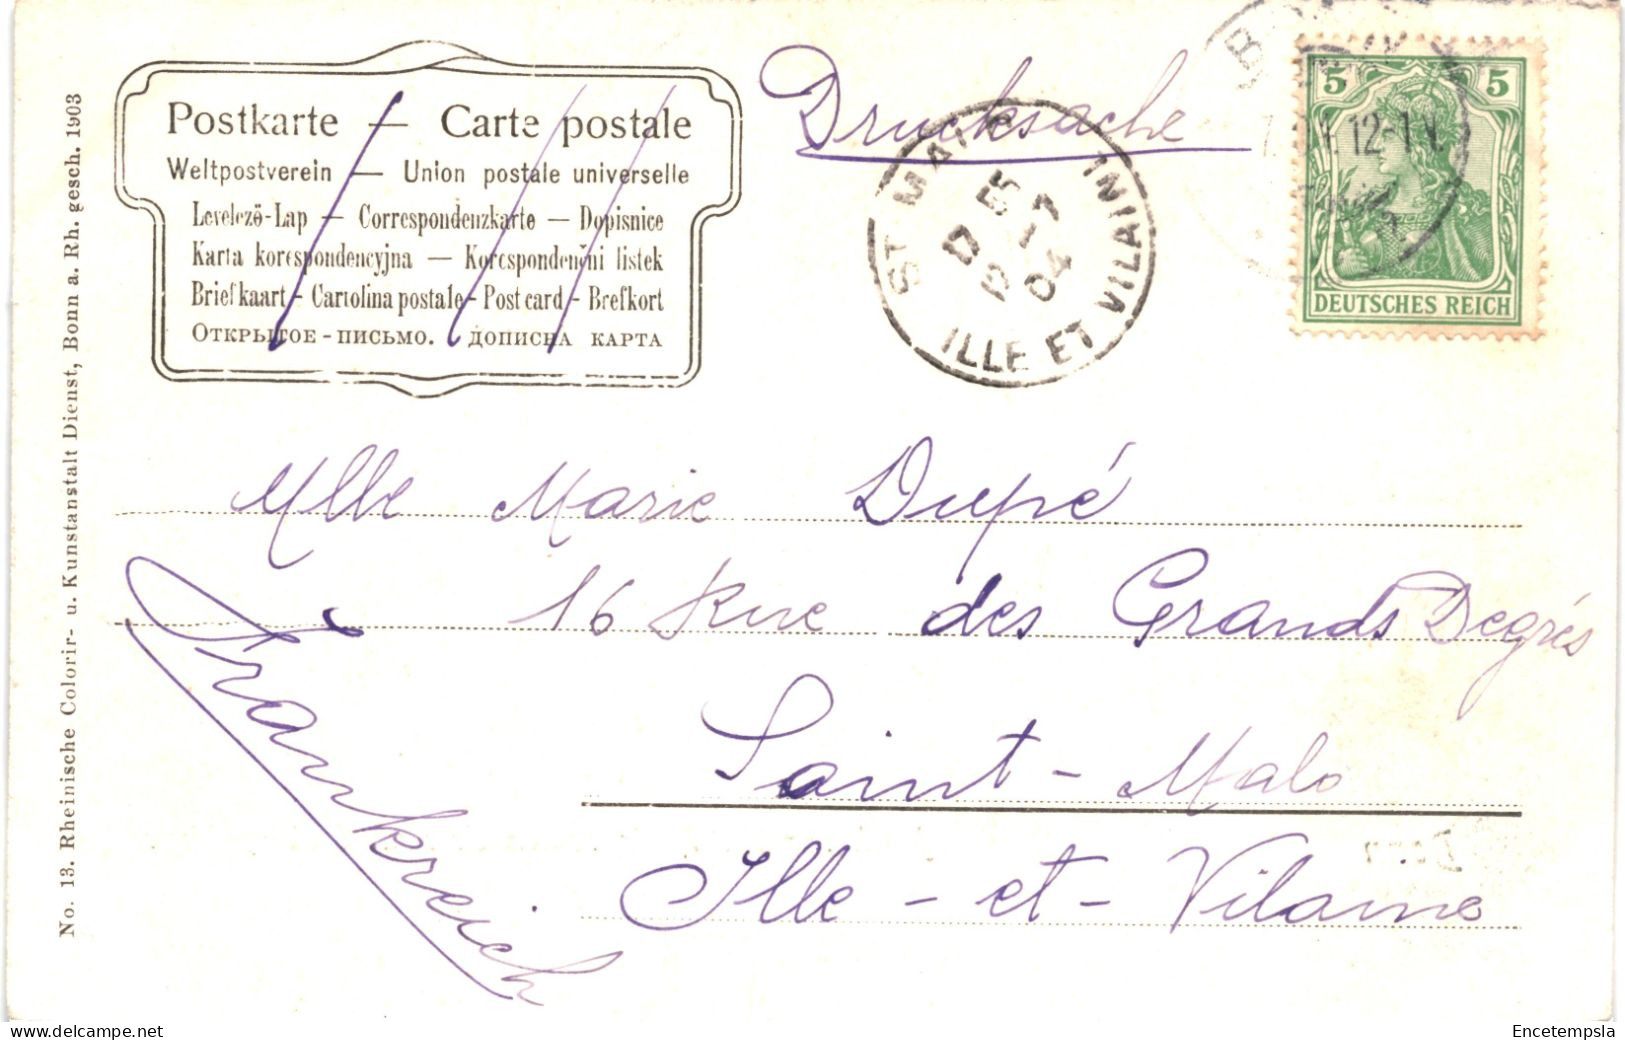 Postkarte — Carte postale
Weltpostverein — Union postale universelle
Levelező-Lap — Correspondenzkarte — Dopisnice
Karta korespondencyjna — Korespondenčni listek
Brief kaart - Cartolina postale - Post card - Brefkort
ОТКРЫТОЕ - ПИСЬМО. ДОПИСНА КАРТА
Drucksache
ST MALO
ILLE ET VILAINE
5 5
12-1 N.
DEUTSCHES REICH
No. 13. Rheinische Colorir- u. Kunstanstalt Dienst, Bonn a. Rh. gesch. 1903
Mlle Marie Dupé
16 Rue des Grands Degrés
Saint-Malo
Ille-et-Vilaine
Frankreich
Encetempsla